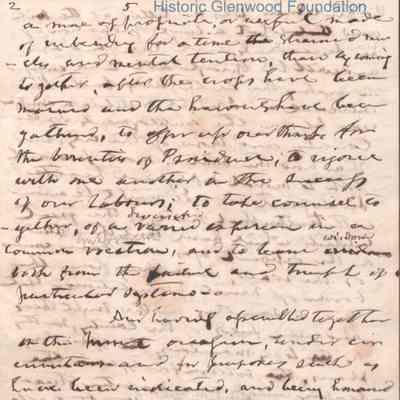 2 5 Historic Glenwood Foundation
a more appropriate or useful mode
of unbending for a time the strained mus
cles and mental tention, than by coming
together, after the crops have been
matured and the harvests have been
gathered, to offer up our thanks for
the bounties of Providence, to rejoice
with one another in the success
of our labours; to take counsel to
-gether, of a varied experience in a
common vocation, and to learn wisdom
both from the failure and triumph of
particular systems
Our having assembled together
on the occasion, under cir
cumstances and for purposes such as
have been indicated, and being